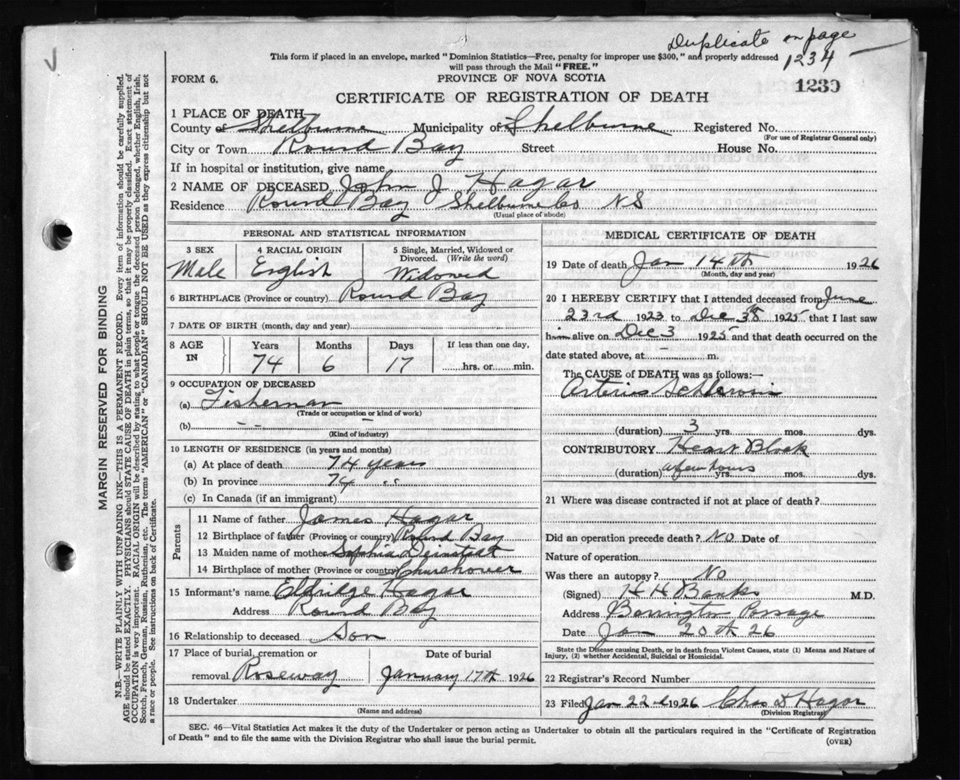 Duplicate on page
1234
This form if placed in an envelope, marked "Dominion Statistics—Free, penalty for improper use $300," and properly addressed
will pass through the Mail "FREE."
FORM 6.
PROVINCE OF NOVA SCOTIA
1239
CERTIFICATE OF REGISTRATION OF DEATH
1 PLACE OF DEATH
County of Shelburne Municipality of Shelburne Registered No.
(For use of Registrar General only)
City or Town Round Bay Street House No.
If in hospital or institution, give name
2 NAME OF DECEASED John J Hagar
Residence Round Bay Shelburne Co NS
(Usual place of abode)
PERSONAL AND STATISTICAL INFORMATION
3 SEX
Male
4 RACIAL ORIGIN
English
5 Single, Married, Widowed or
Divorced. (Write the word)
Widowed
6 BIRTHPLACE (Province or country) Round Bay
7 DATE OF BIRTH (month, day and year)
8 AGE
IN
Years Months Days If less than one day,
74 6 17 hrs. or min.
9 OCCUPATION OF DECEASED
(a) Fisherman
(Trade or occupation or kind of work)
(b) - -
(Kind of industry)
10 LENGTH OF RESIDENCE (in years and months)
(a) At place of death 74 years
(b) In province 74 "
(c) In Canada (if an immigrant)
Parents
11 Name of father James Hagar
12 Birthplace of father (Province or country) Round Bay
13 Maiden name of mother Sophia
14 Birthplace of mother (Province or country) Churchover
15 Informant's name Eldridge Hagar
Address Round Bay
16 Relationship to deceased Son
17 Place of burial, cremation or Date of burial
removal Roseway January 17th 1926
18 Undertaker
(Name and address)
MEDICAL CERTIFICATE OF DEATH
19 Date of death Jan 14th 1926
(Month, day and year)
20 I HEREBY CERTIFY that I attended deceased from June
23rd 1923 to Dec 1925 that I last saw
him alive on Dec 3 1925 and that death occurred on the
date stated above, at - m.
The CAUSE of DEATH was as follows:—
Arterio Schlerosis
(duration) 3 yrs. mos. dys.
CONTRIBUTORY Heart Block
(duration) a few hours yrs. mos. dys.
21 Where was disease contracted if not at place of death?
Did an operation precede death? No Date of
Nature of operation
Was there an autopsy? No
(Signed) H H Banks M.D.
Address Barrington Passage
Date Jan 20th 26
State the Disease causing Death, or in death from Violent Causes, state (1) Means and Nature of
Injury, (2) whether Accidental, Suicidal or Homicidal.
22 Registrar's Record Number
23 Filed Jan 22d 1926 Chas D Hagar
(Division Registrar)
SEC. 46—Vital Statistics Act makes it the duty of the Undertaker or person acting as Undertaker to obtain all the particulars required in the "Certificate of Registration
of Death" and to file the same with the Division Registrar who shall issue the burial permit. (OVER)
MARGIN RESERVED FOR BINDING
N.B.—WRITE PLAINLY WITH UNFADING INK—THIS IS A PERMANENT RECORD. Every item of information should be carefully supplied.
AGE should be stated EXACTLY. PHYSICIANS should STATE CAUSE OF DEATH in plain terms, so that it may be properly classified. Exact statement of
OCCUPATION is very important. RACIAL ORIGIN will be described by stating to what people or tongue the deceased person belonged, whether English, Irish,
Scotch, French, German, Russian, Ruthenian, etc. The terms "AMERICAN" or "CANADIAN" SHOULD NOT BE USED as they express citizenship but not
a race or people. See instructions on back of Certificate.